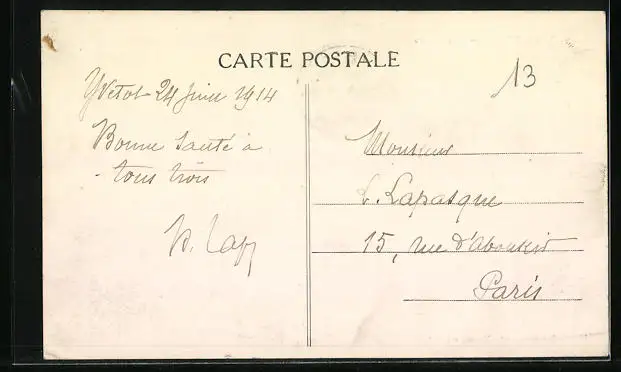 CARTE POSTALE
13
Yvetot 24 Juin 1914
Bonne Santé à
tous trois
Monsieur
L. Lapasque
15, rue d'Aboukir
Paris